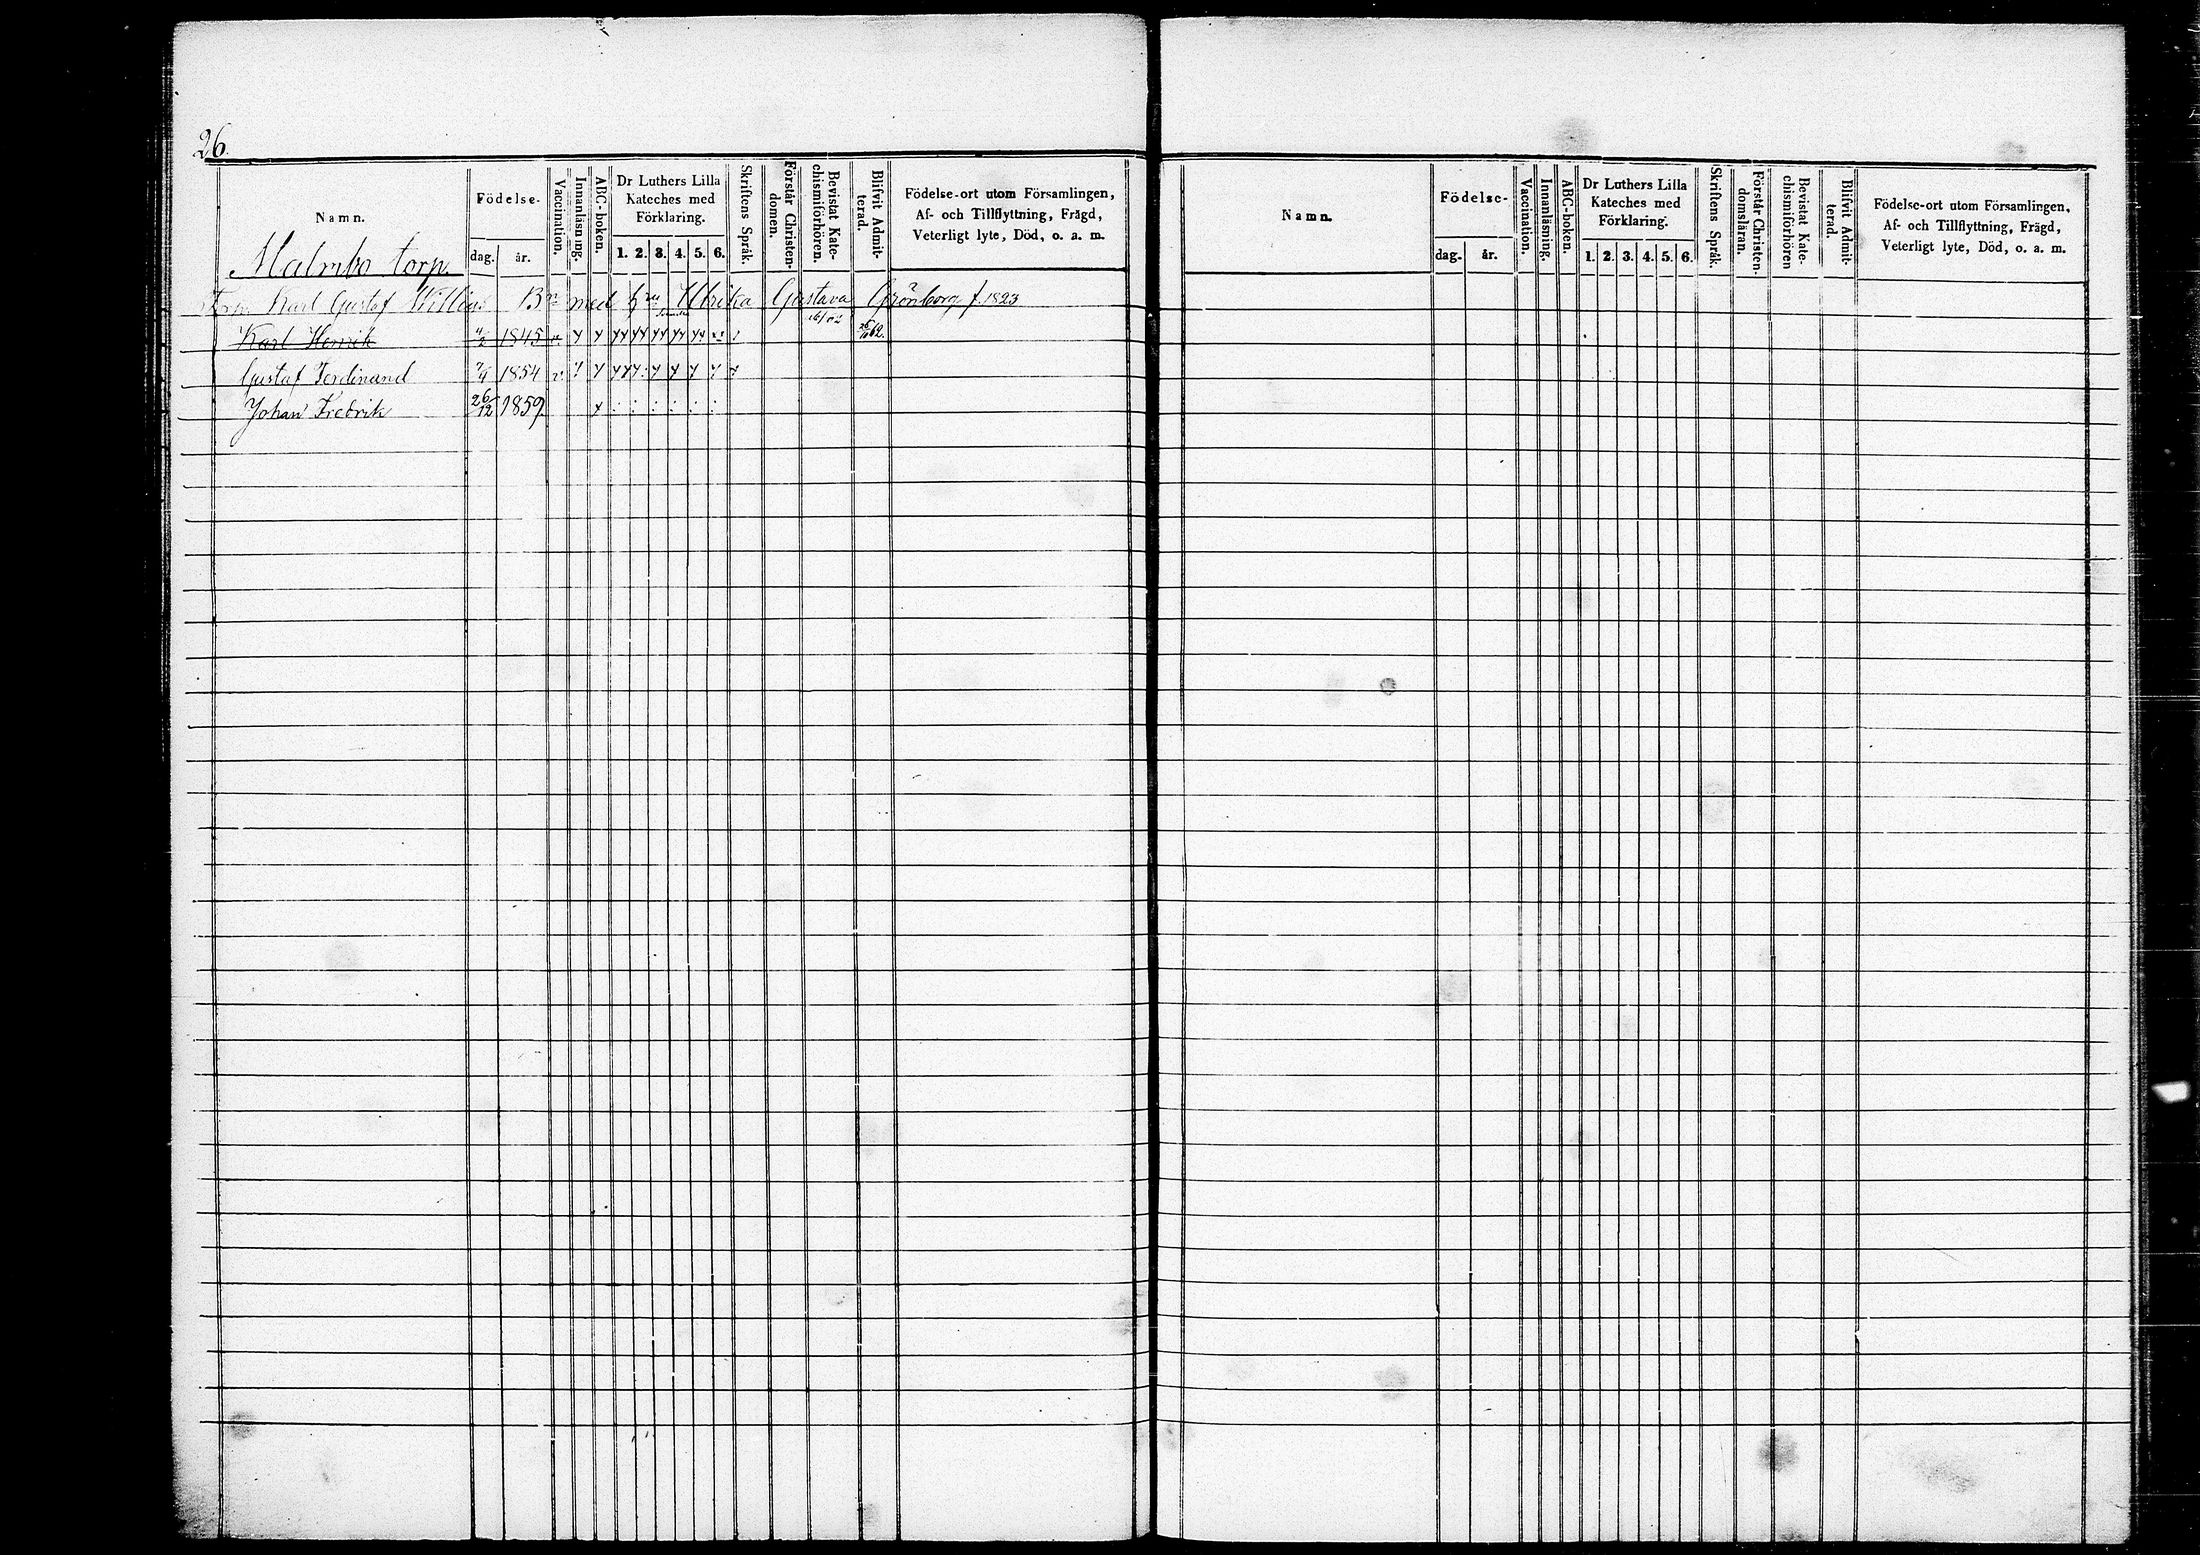 26.
Namn.
Födelse-
dag. år.
Vaccination.
Innanläsning.
ABC-boken.
Dr Luthers Lilla
Kateches med
Förklaring.
1. 2. 3. 4. 5. 6.
Skriftens Språk.
Förstår Christen-
domen.
Bevistat Kate-
chismiförhören.
Blifvit Admit-
terad.
Födelse-ort utom Församlingen,
Af- och Tillflyttning, Frägd,
Veterligt lyte, Död, o. a. m.
Malmbo torp.
Torp. Karl Gustaf Bn med Ulrika Gustava Grönborg f. 1823
Karl Henrik 1845
Gustaf Ferdinand 1854 v.
Johan Fredrik 26/12 1859
Namn.
Födelse-
dag. år.
Vaccination.
Innanläsning.
ABC-boken.
Dr Luthers Lilla
Kateches med
Förklaring.
1. 2. 3. 4. 5. 6.
Skriftens Språk.
Förstår Christen-
domsläran.
Bevistat Kate-
chismiförhören
Blifvit Admit-
terad.
Födelse-ort utom Församlingen,
Af- och Tillflyttning, Frägd,
Veterligt lyte, Död, o. a. m.